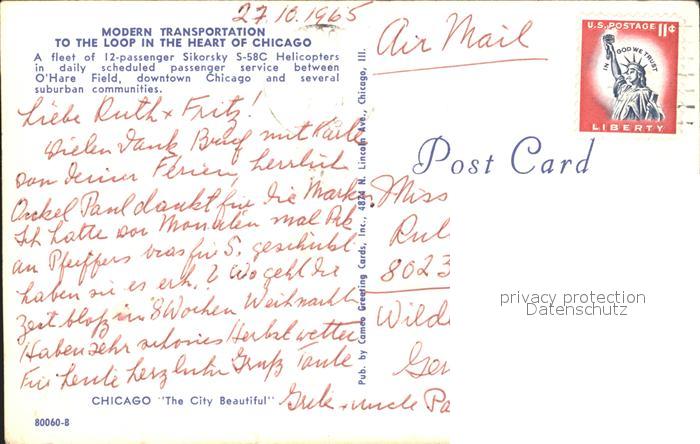 27.10.1965
MODERN TRANSPORTATION
TO THE LOOP IN THE HEART OF CHICAGO
A fleet of 12-passenger Sikorsky S-58C Helicopters
in daily scheduled passenger service between
O'Hare Field, downtown Chicago and several
suburban communities.
Liebe Ruth + Fritz!
Vielen Dank Brief mit Karte
von Deiner Ferien, herrlich
Onkel Paul dankt für die Marken.
Ich hatte vor Monaten mal Pak
an Pfeiffers was für S. geschickt
haben sie es erh.? Wo geht die
Zeit bloß in 8 Wochen Weihnacht
Haben sehr schönes Herbstwetter
Für heute herzliche Grüße Tante
Grete + uncle Pa
CHICAGO "The City Beautiful"
80060-B
Pub. by Cameo Greeting Cards, Inc., 4874 N. Lincoln Ave., Chicago, Ill.
Air Mail
U.S. POSTAGE 11¢
IN GOD WE TRUST
LIBERTY
Post Card
Miss
8023
privacy protection
Datenschutz